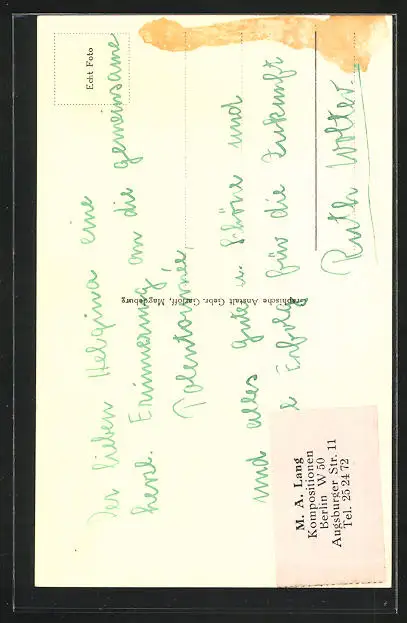 Echt Foto
Der lieben Helgina eine
herzl. Erinnerung an die gemeinsame
Polentournée
und alles Gute u. Schöne und
Erfolg für die Zukunft
Ruth Wolter.
Graphische Anstalt Gebr. Garloff, Magdeburg
M. A. Lang
Kompositionen
Berlin W 50
Augsburger Str. 11
Tel. 25 24 72